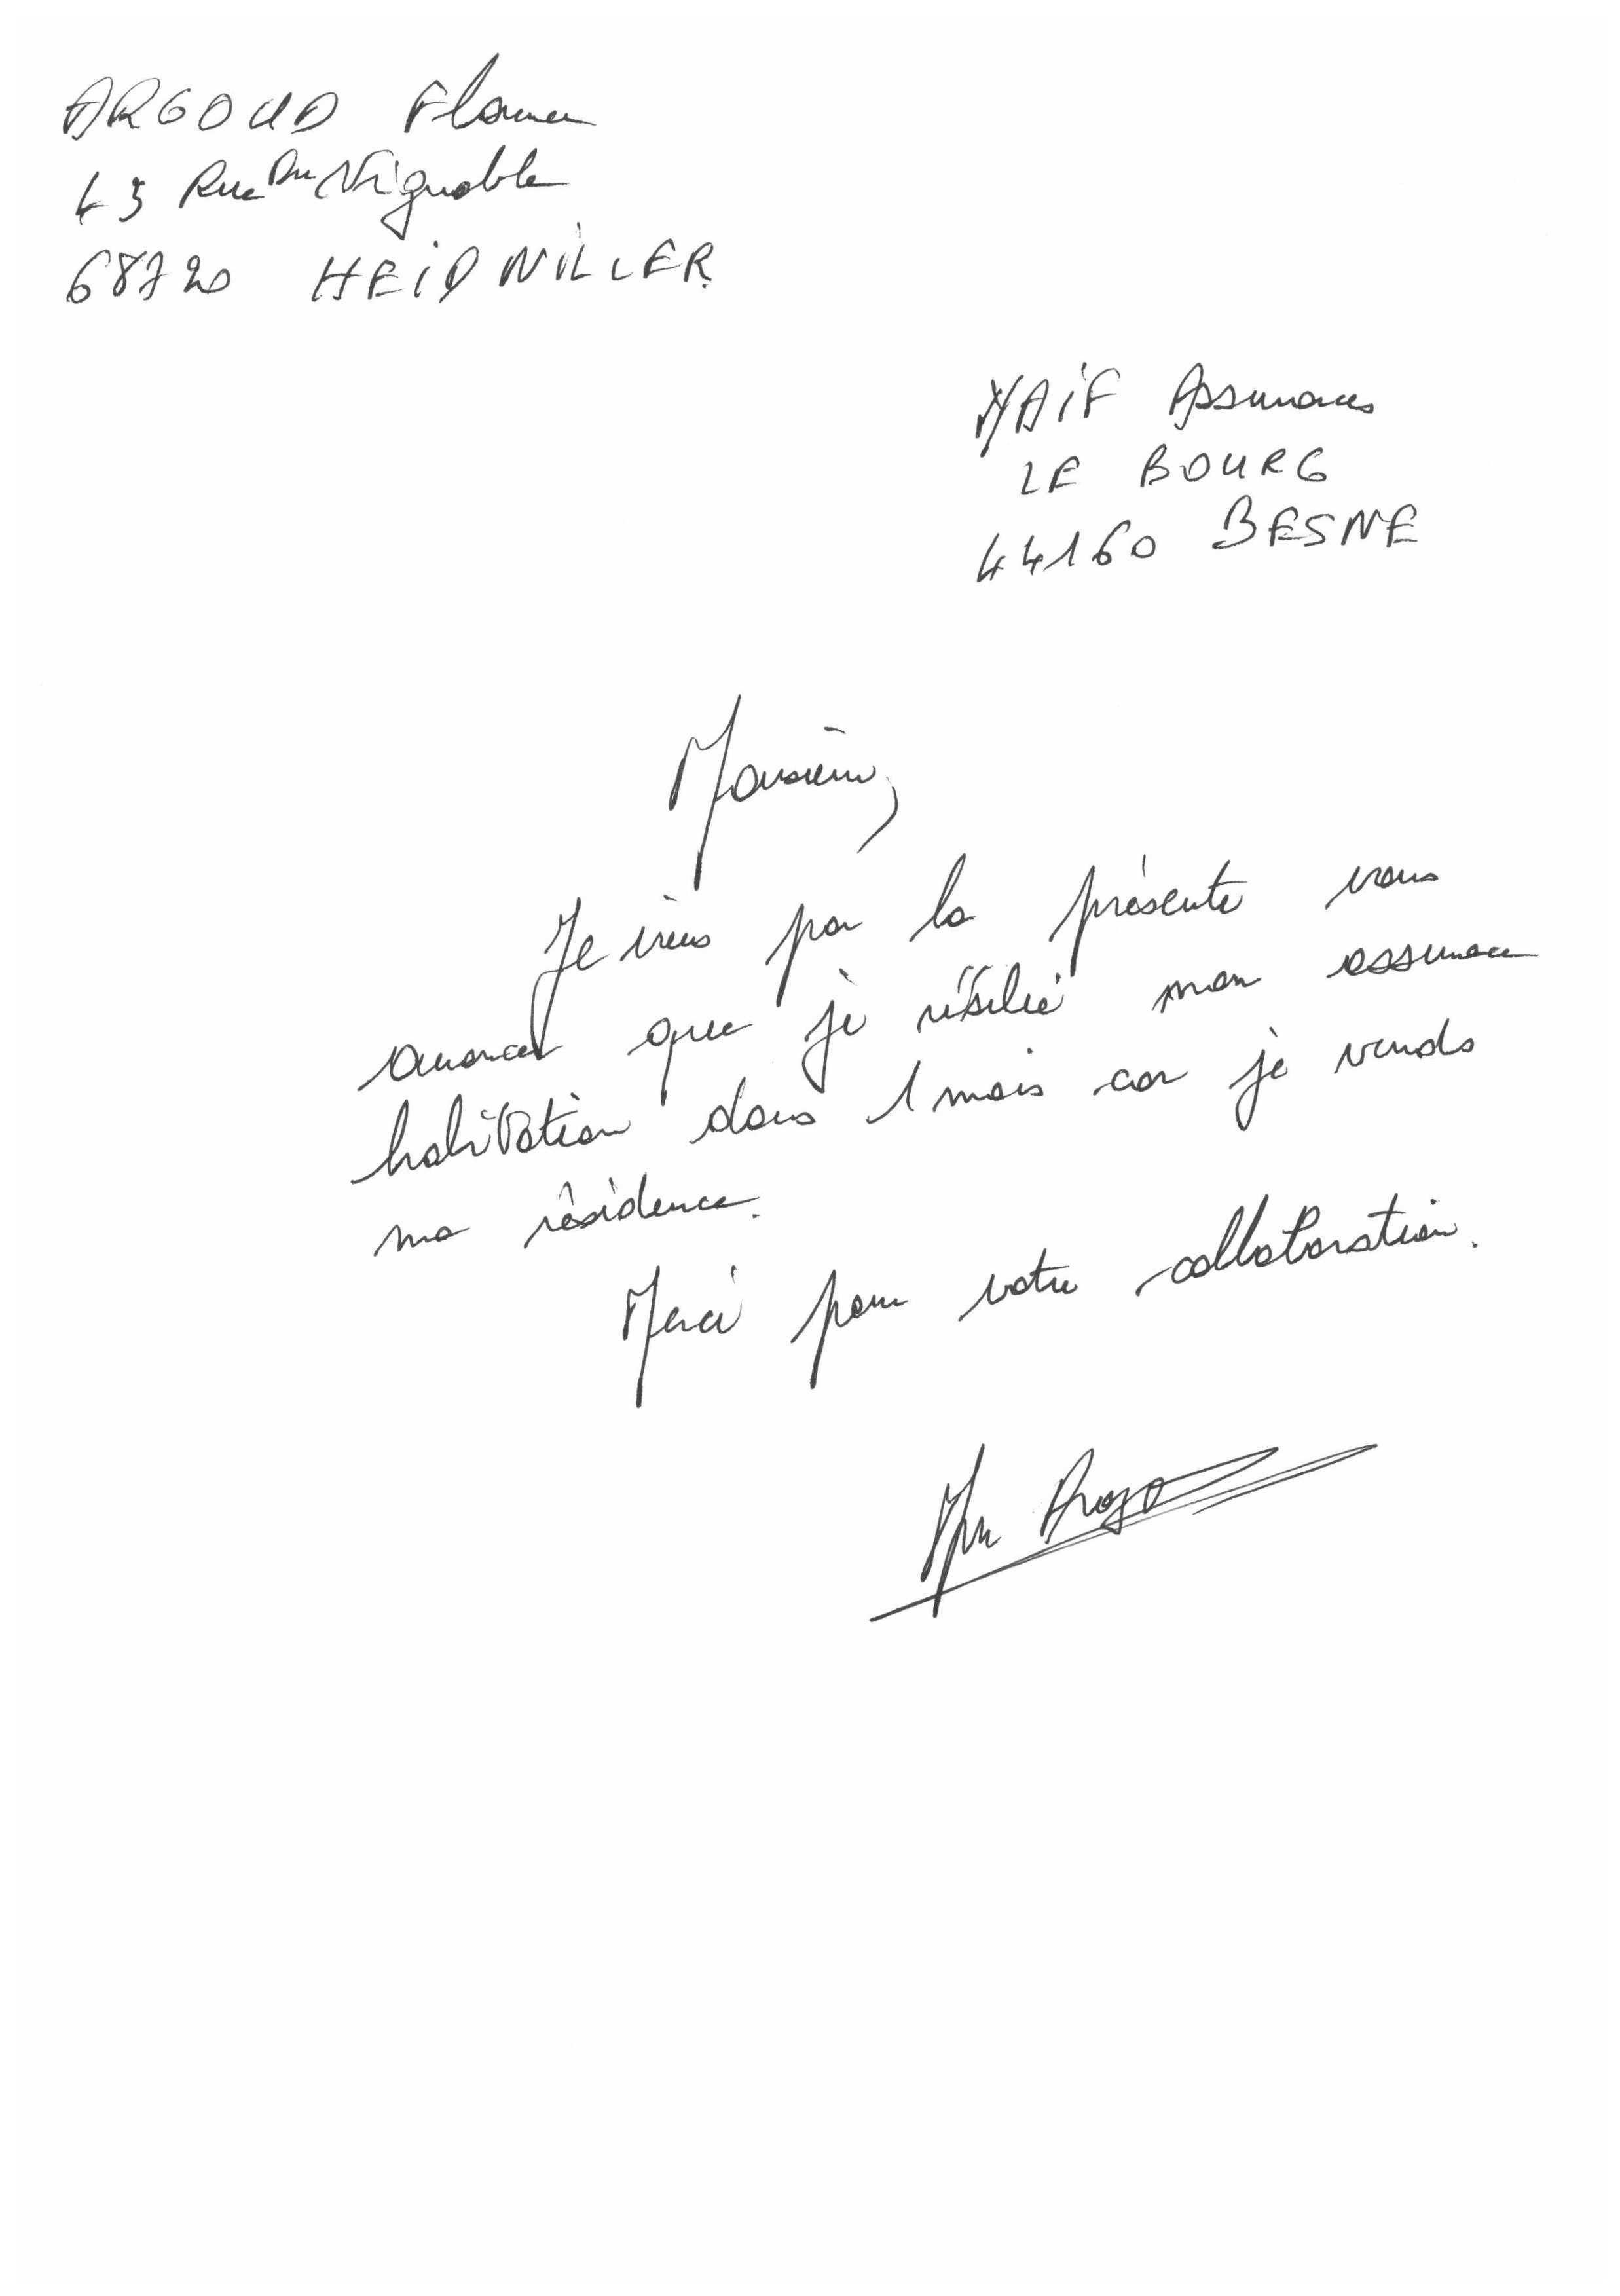 ARGOUD Florence
43 Rue Du Vignoble
68720 HEIDWILLER
MAIF Assurances
LE BOURG
44160 BESNE
Monsieur,
Je viens par la présente vous
annoncer que je résilie mon assurance
habitation dans 1 mois car je vends
ma résidence.
Merci pour votre collaboration.